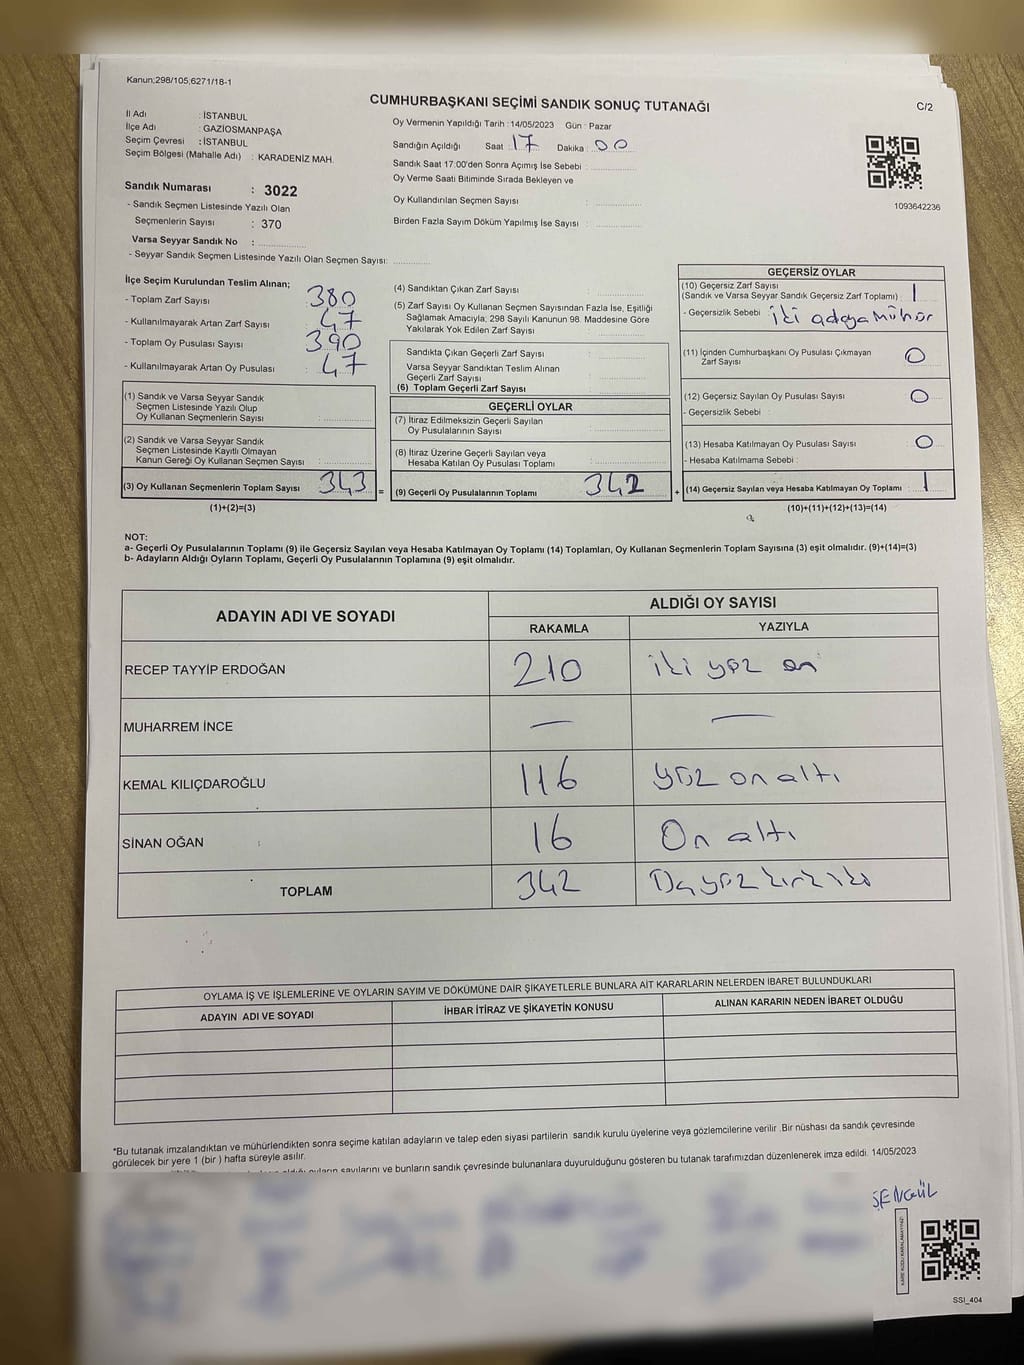 Kanun;298/105;6271/18-1
CUMHURBAŞKANI SEÇİMİ SANDIK SONUÇ TUTANAĞI
C/2
İl Adı : İSTANBUL
İlçe Adı : GAZİOSMANPAŞA
Seçim Çevresi : İSTANBUL
Seçim Bölgesi (Mahalle Adı) : KARADENİZ MAH.
Sandık Numarası : 3022
- Sandık Seçmen Listesinde Yazılı Olan
Seçmenlerin Sayısı : 370
Varsa Seyyar Sandık No :
- Seyyar Sandık Seçmen Listesinde Yazılı Olan Seçmen Sayısı:
Oy Vermenin Yapıldığı Tarih : 14/05/2023 Gün : Pazar
Sandığın Açıldığı Saat : 17 Dakika : 00
Sandık Saat 17:00'den Sonra Açımış İse Sebebi :
Oy Verme Saati Bitiminde Sırada Bekleyen ve
Oy Kullandırılan Seçmen Sayısı :
Birden Fazla Sayım Döküm Yapılmış İse Sayısı :
1093642236
İlçe Seçim Kurulundan Teslim Alınan;
- Toplam Zarf Sayısı : 380
- Kullanılmayarak Artan Zarf Sayısı : 47
- Toplam Oy Pusulası Sayısı : 390
- Kullanılmayarak Artan Oy Pusulası : 47
(1) Sandık ve Varsa Seyyar Sandık
Seçmen Listesinde Yazılı Olup
Oy Kullanan Seçmenlerin Sayısı :
(2) Sandık ve Varsa Seyyar Sandık
Seçmen Listesinde Kayıtlı Olmayan
Kanun Gereği Oy Kullanan Seçmen Sayısı :
(3) Oy Kullanan Seçmenlerin Toplam Sayısı : 343
(1)+(2)=(3)
=
(4) Sandıktan Çıkan Zarf Sayısı :
(5) Zarf Sayısı Oy Kullanan Seçmen Sayısından Fazla İse, Eşitliği
Sağlamak Amacıyla; 298 Sayılı Kanunun 98. Maddesine Göre
Yakılarak Yok Edilen Zarf Sayısı :
Sandıkta Çıkan Geçerli Zarf Sayısı :
Varsa Seyyar Sandıktan Teslim Alınan
Geçerli Zarf Sayısı :
(6) Toplam Geçerli Zarf Sayısı :
GEÇERLİ OYLAR
(7) İtiraz Edilmeksizin Geçerli Sayılan
Oy Pusulalarının Sayısı :
(8) İtiraz Üzerine Geçerli Sayılan veya
Hesaba Katılan Oy Pusulası Toplamı :
(9) Geçerli Oy Pusulalarının Toplamı : 342
+
GEÇERSİZ OYLAR
(10) Geçersiz Zarf Sayısı
(Sandık ve Varsa Seyyar Sandık Geçersiz Zarf Toplamı) : 1
- Geçersizlik Sebebi : iki adaya mühür
(11) İçinden Cumhurbaşkanı Oy Pusulası Çıkmayan
Zarf Sayısı : 0
(12) Geçersiz Sayılan Oy Pusulası Sayısı : 0
- Geçersizlik Sebebi :
(13) Hesaba Katılmayan Oy Pusulası Sayısı : 0
- Hesaba Katılmama Sebebi :
(14) Geçersiz Sayılan veya Hesaba Katılmayan Oy Toplamı : 1
(10)+(11)+(12)+(13)=(14)
NOT:
a- Geçerli Oy Pusulalarının Toplamı (9) ile Geçersiz Sayılan veya Hesaba Katılmayan Oy Toplamı (14) Toplamları, Oy Kullanan Seçmenlerin Toplam Sayısına (3) eşit olmalıdır. (9)+(14)=(3)
b- Adayların Aldığı Oyların Toplamı, Geçerli Oy Pusulalarının Toplamına (9) eşit olmalıdır.
ADAYIN ADI VE SOYADI
ALDIĞI OY SAYISI
RAKAMLA YAZIYLA
RECEP TAYYİP ERDOĞAN 210 iki yüz on
MUHARREM İNCE — —
KEMAL KILIÇDAROĞLU 116 yüz on altı
SİNAN OĞAN 16 On altı
TOPLAM 342
OYLAMA İŞ VE İŞLEMLERİNE VE OYLARIN SAYIM VE DÖKÜMÜNE DAİR ŞİKAYETLERLE BUNLARA AİT KARARLARIN NELERDEN İBARET BULUNDUKLARI
ADAYIN ADI VE SOYADI İHBAR İTİRAZ VE ŞİKAYETİN KONUSU ALINAN KARARIN NEDEN İBARET OLDUĞU
*Bu tutanak imzalandıktan ve mühürlendikten sonra seçime katılan adayların ve talep eden siyasi partilerin sandık kurulu üyelerine veya gözlemcilerine verilir .Bir nüshası da sandık çevresinde
görülecek bir yere 1 (bir ) hafta süreyle asılır.
sayılarını ve bunların sandık çevresinde bulunanlara duyurulduğunu gösteren bu tutanak tarafımızdan düzenlenerek imza edildi. 14/05/2023
ŞENGÜL
KARE KODU KARALAMAYINIZ!
SSI_404